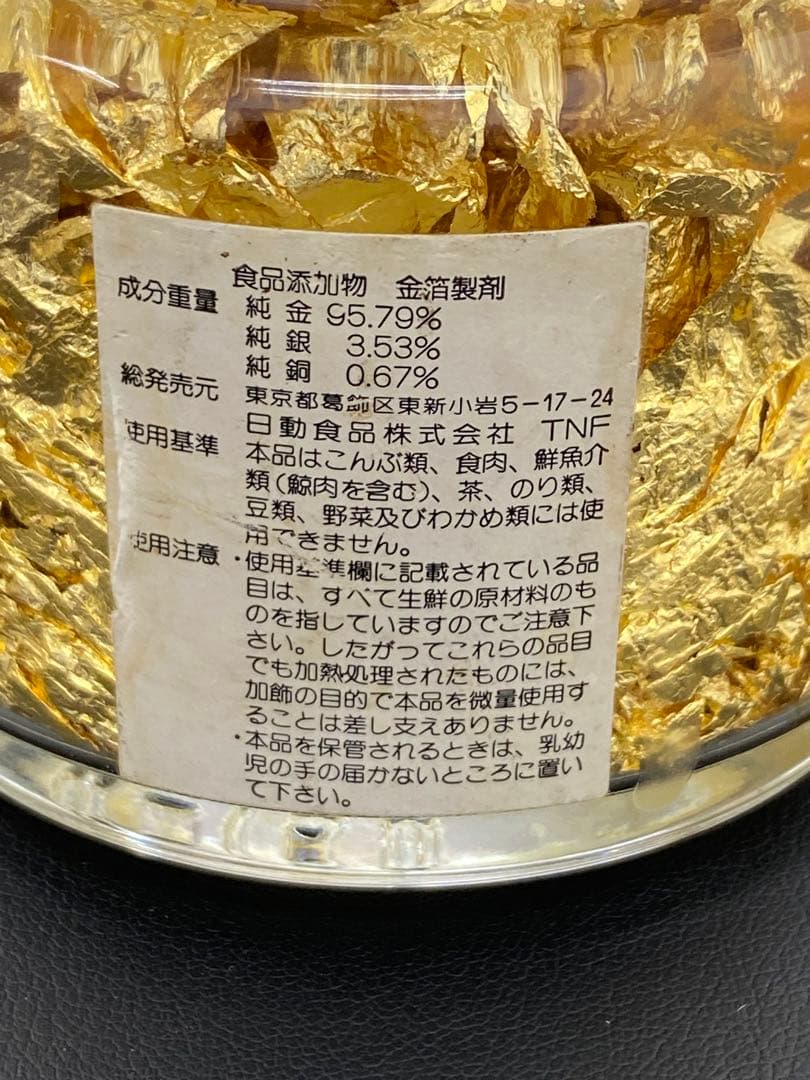 食品添加物 金箔製剤
成分重量 純金 95.79%
純銀 3.53%
純銅 0.67%
総発売元 東京都葛飾区東新小岩5-17-24
日動食品株式会社 TNF
使用基準 本品はこんぶ類、食肉、鮮魚介
類(鯨肉を含む)、茶、のり類、
豆類、野菜及びわかめ類には使
用できません。
使用注意 ・使用基準欄に記載されている品
目は、すべて生鮮の原材料のも
のを指していますのでご注意下
さい。したがってこれらの品目
でも加熱処理されたものには、
加飾の目的で本品を微量使用す
ることは差し支えありません。
・本品を保管されるときは、乳幼
児の手の届かないところに置い
て下さい。